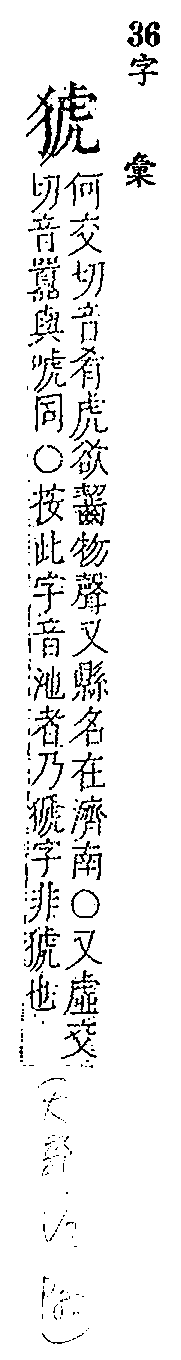 36字彙
猇
何交切音肴虎欲齧物聲又縣名在濟南○又虛交
切音囂與唬同○按此字音池者乃㹝字非猇也